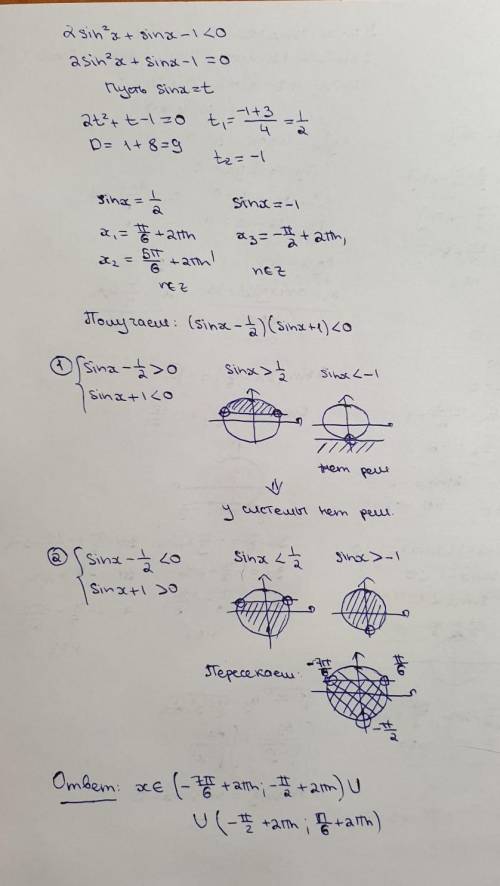 2sin²x + sinx - 1 < 0
2sin²x + sinx - 1 = 0
Пусть sinx = t
2t² + t - 1 = 0   t₁ = (-1+3)/4 = 1/2
D = 1 + 8 = 9   t₂ = -1
sinx = 1/2   sinx = -1
x₁ = π/6 + 2πn   x₃ = -π/2 + 2πn,
x₂ = 5π/6 + 2πn,   n∈Z
n∈Z
Получаем: (sinx - 1/2)(sinx+1) < 0
① { sinx - 1/2 > 0   sinx > 1/2   sinx < -1
sinx + 1 < 0
нет реш
⇓
у системы нет реш.
② { sinx - 1/2 < 0   sinx < 1/2   sinx > -1
sinx + 1 > 0
Пересекаем:   -7π/6   π/6
-π/2
Ответ: x∈ (-7π/6 + 2πn; -π/2 + 2πn) U
U (-π/2 + 2πn; π/6 + 2πn)